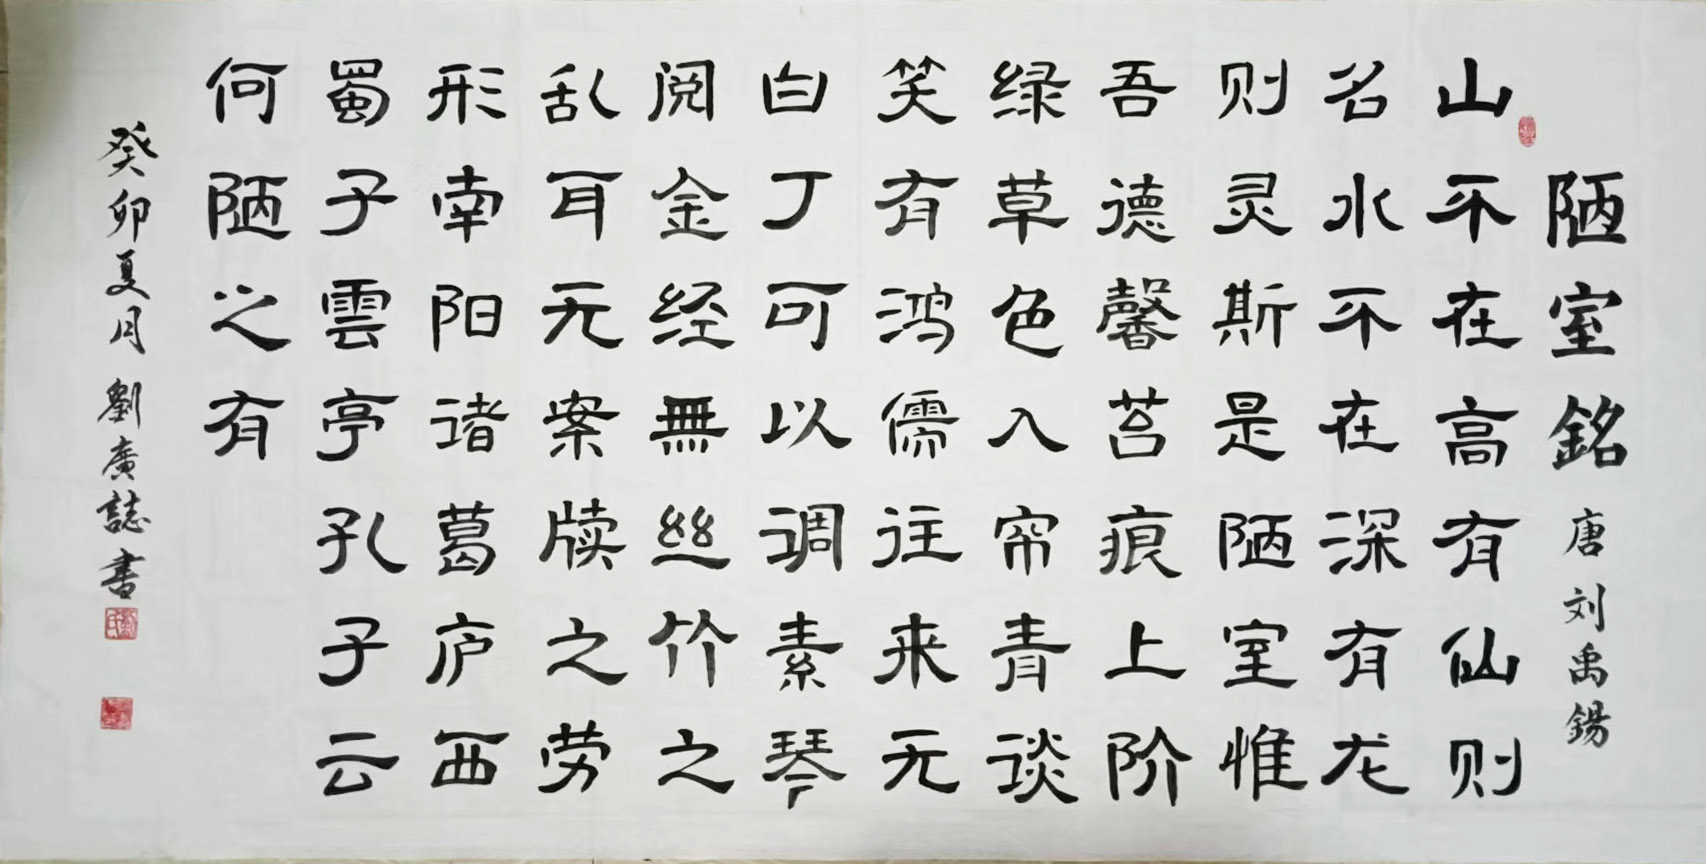 陋室銘 唐 刘禹錫
山不在高有仙则
名水不在深有龙
则灵斯是陋室惟
吾德馨苔痕上阶
绿草色入帘青谈
笑有鸿儒往来无
白丁可以调素琴
阅金经無丝竹之
乱耳无案牍之劳
形南阳诸葛庐西
蜀子雲亭孔子云
何陋之有
癸卯夏月 劉廣誌書